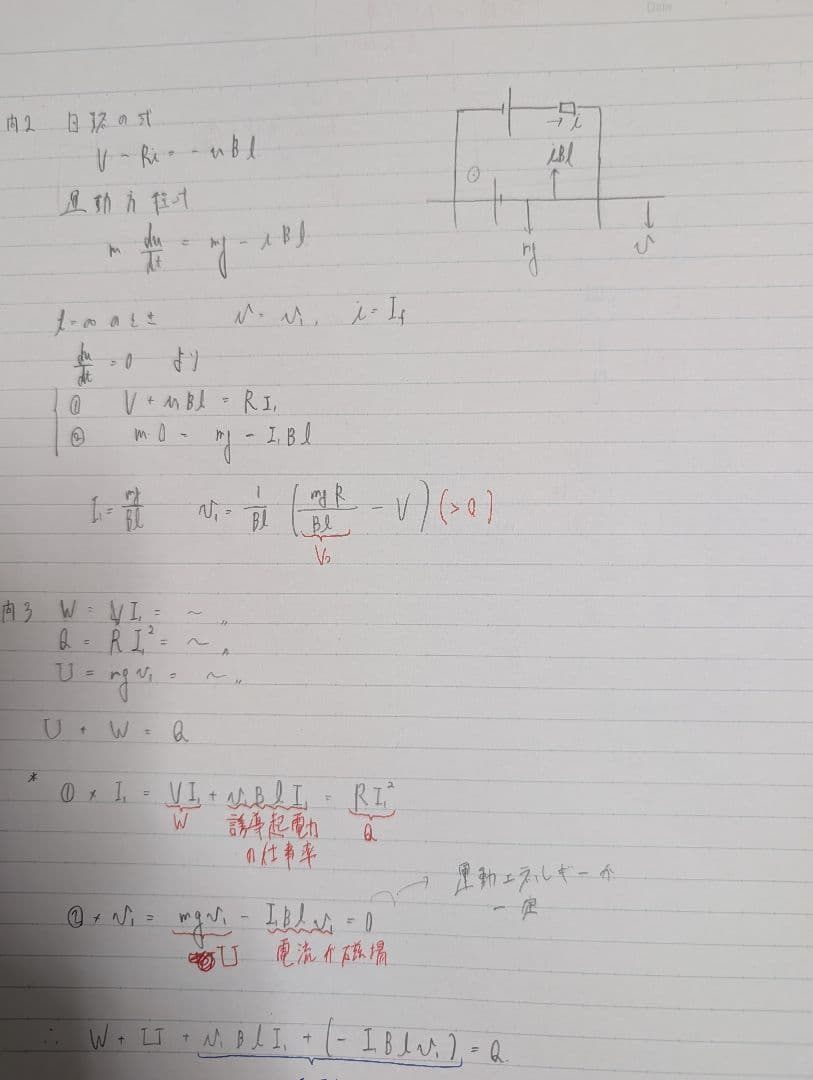 Date
問2 回路の式
V - Ri = - vBl
運動方程式
m dv/dt = mg - iBl
→ i
iBl
mg
v
t=∞のとき v = v₁, i = I₁
dv/dt = 0 より
① V + v₁Bl = RI₁
② m・0 = mg - I₁Bl
I₁ = mg/Bl v₁ = 1/Bl (mgR/Bl - V) (>0)
V₀
問3 W = VI₁ = ~ 〃
Q = RI₁² = ~ 〃
U = mgv₁ = ~ 〃
U + W = Q
* ① × I₁ = VI₁ + v₁BlI₁ = RI₁²
W 誘導起電力の仕事率 Q
→ 運動エネルギーが
一定
② × v₁ = mgv₁ - I₁Blv₁ = 0
U 電流が磁場
∴ W + U + v₁BlI₁ + (- I₁Blv₁) = Q